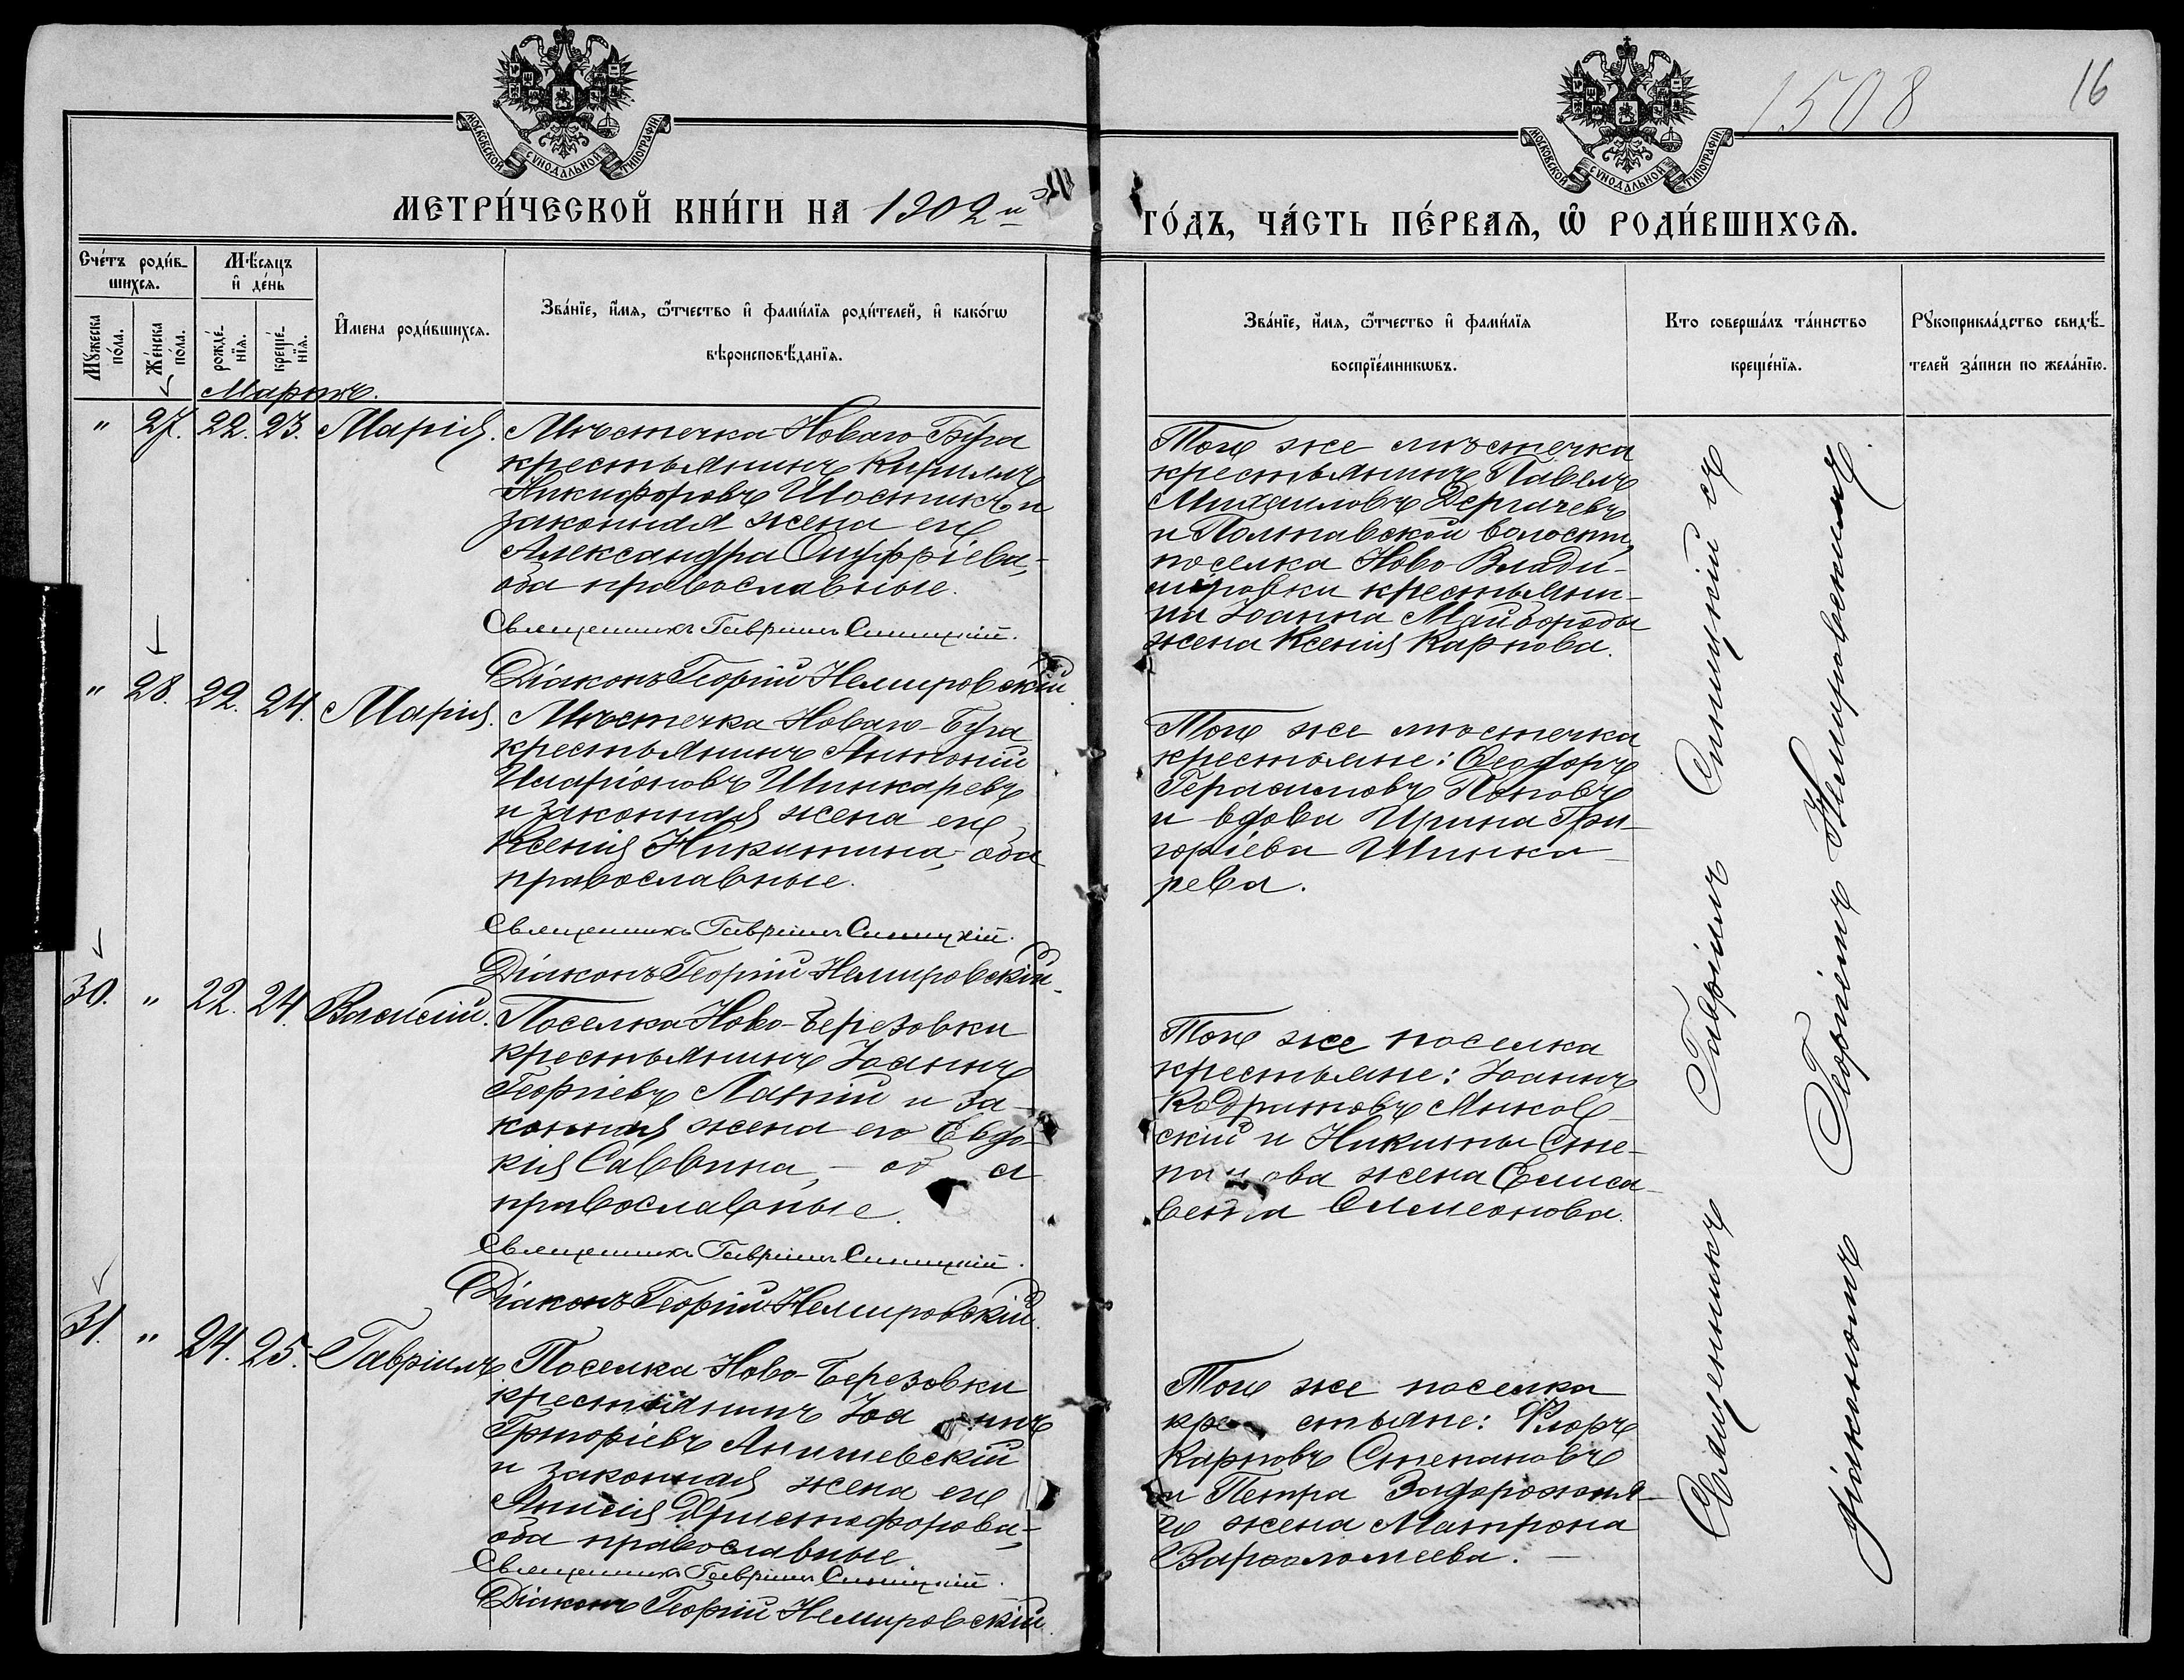 1508
16
МОСКОВСКОЙ СѴНОДАЛЬНОЙ ТИПОГРАФІИ
МОСКОВСКОЙ СѴНОДАЛЬНОЙ ТИПОГРАФІИ
МЕТРИ́ЧЕСКОЙ КНИ́ГИ НА 1902 й
ГО́ДЪ, ЧА́СТЬ ПЕ́РВАѦ, Ѽ РОДИ́ВШИХСѦ.
Сче́тъ роди́в-
шихсѧ.
Мꙋ́жеска по́ла.
Же́нска по́ла.
Мѣ́сѧцъ и҆ де́нь
рожде́-нїѧ.
креще́-нїѧ.
И҆мена роди́вшихсѧ.
Зва́нїе, и҆́мѧ, ѻ҆́тчество и҆ фами́лїѧ роди́телей, и҆ како́гѡ
вѣроисповѣ́данїѧ.
Зва́нїе, и҆́мѧ, ѻ҆́тчество и҆ фами́лїѧ
воспрїе́мникѡвъ.
Кто соверша́лъ та́инство
креще́нїѧ.
Рꙋкоприкла́дство свидѣ́-
телей за́писи по жела́нїю.
Мартъ.
" 27. 22. 23. Марія.
Мѣстечка Новаго-Буга
крестьянинъ Кириллъ
Никифоровъ Шостикъ и
законная жена его
Александра Онуфріева,-
оба православные.
Священникъ Гавріилъ Синицкій.
Діаконъ Георгій Немировскій
Того же мѣстечка
крестьянинъ Павелъ
Михаиловъ Дергачевъ
и Полтавской волости,
поселка Ново-Влади-
міровки крестьяни-
на Іоанна Майбороды
жена Ксенія Карпова.
" 28. 22. 24. Марія.
Мѣстечка Новаго-Буга
крестьянинъ Антоній
Иларіоновъ Шинкаревъ
и законная жена его
Ксенія Никитина,- оба
православные.
Священникъ Гавріилъ Синицкій.
Діаконъ Георгій Немировскій.
Того же мѣстечка
крестьяне: Ѳеодоръ
Герасимовъ Поповъ
и вдова Ирина Гри-
горіева Шинка-
рева.
30. " 22. 24. Василій.
Поселка Ново-Березовки
крестьянинъ Іоаннъ
Георгіевъ Латій и за-
конная жена его Евдо-
кія Саввина,- оба
православные.
Священникъ Гавріилъ Синицкій.
Діаконъ Георгій Немировскій.
Того же поселка
крестьяне: Іоаннъ
Кодратовъ Янков-
скій и Никиты Сте-
панова жена Елиса-
вета Симеонова.
31. " 24. 25. Гавріилъ.
Поселка Ново-Березовки
крестьянинъ Іоаннъ
Григоріевъ Анишевскій
и законная жена его
Анисія Христофорова,-
оба православные.
Священникъ Гавріилъ Синицкій.
Діаконъ Георгій Немировскій.
Того же поселка
крестьяне: Флоръ
Карповъ Степановъ
и Петра Задорожня-
го жена Матрона
Варѳоломеева.-
Священникъ Гавріилъ Синицкій съ
діакономъ Георгіемъ Немировскимъ.